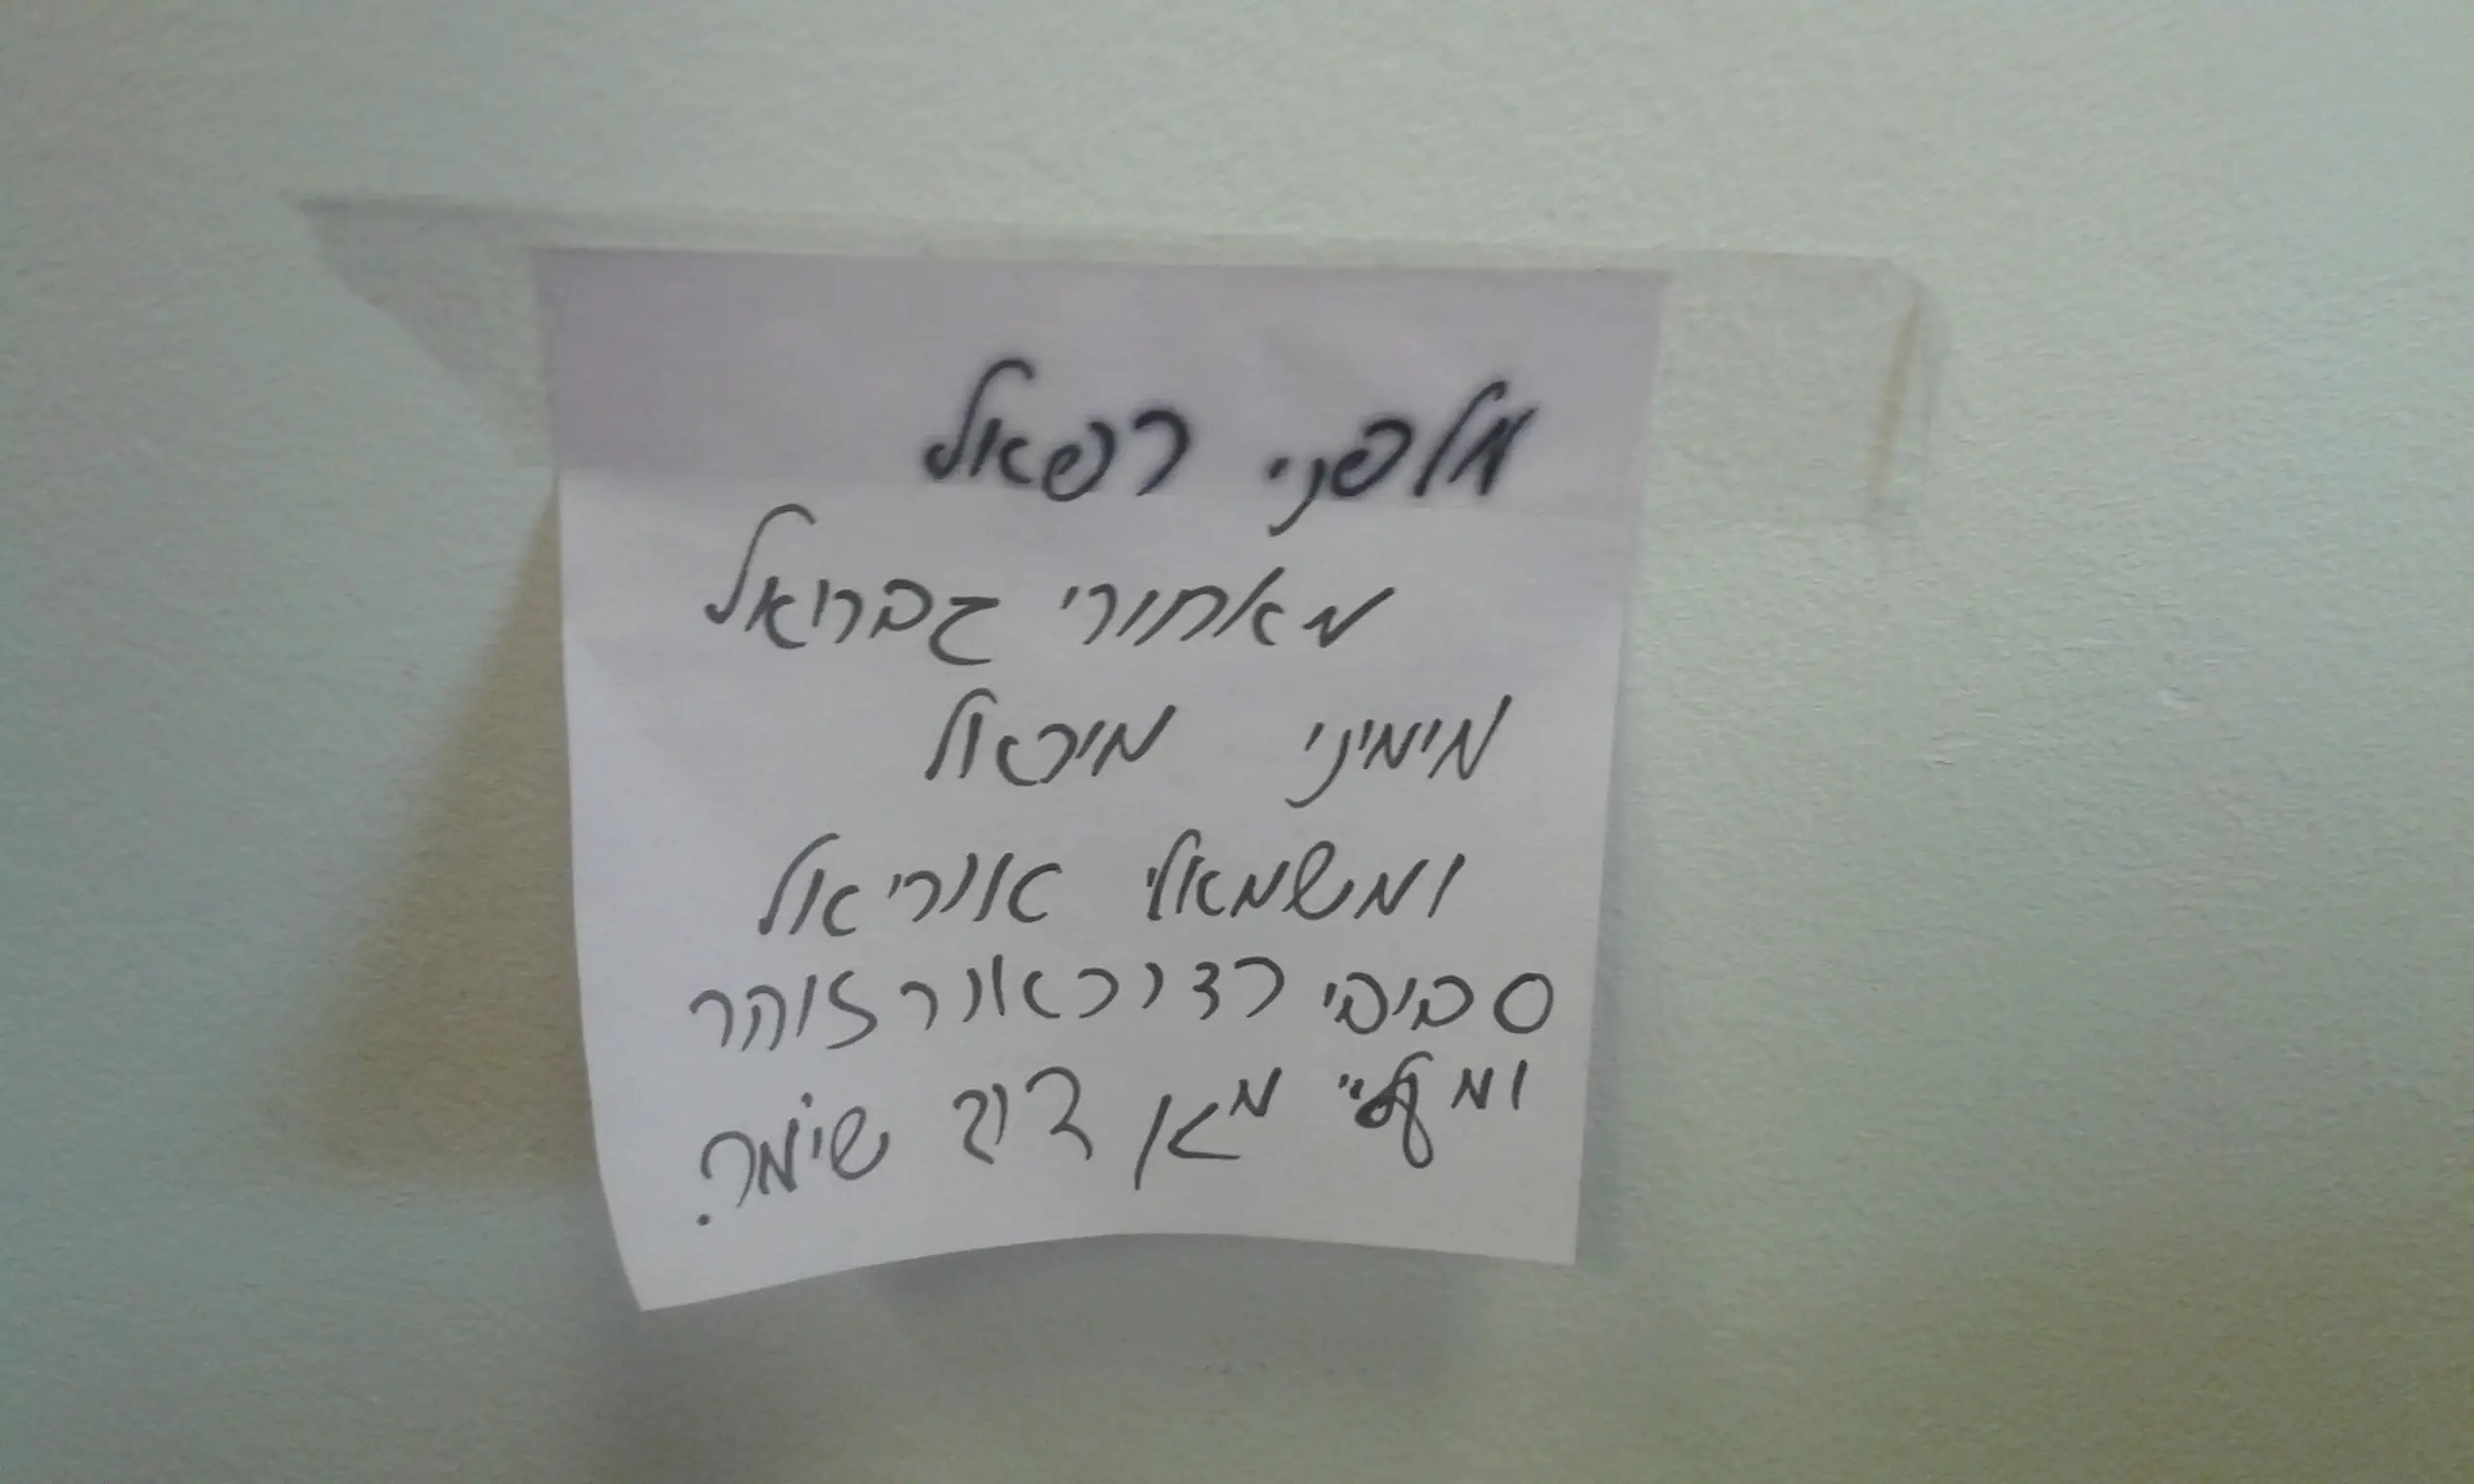 מלפני רפאל
מאחורי גבריאל
מימיני מיכאל
ומשמאלי אוריאל
סביבי כדור אור זוהר
ומעליי מגן דוד שומר.